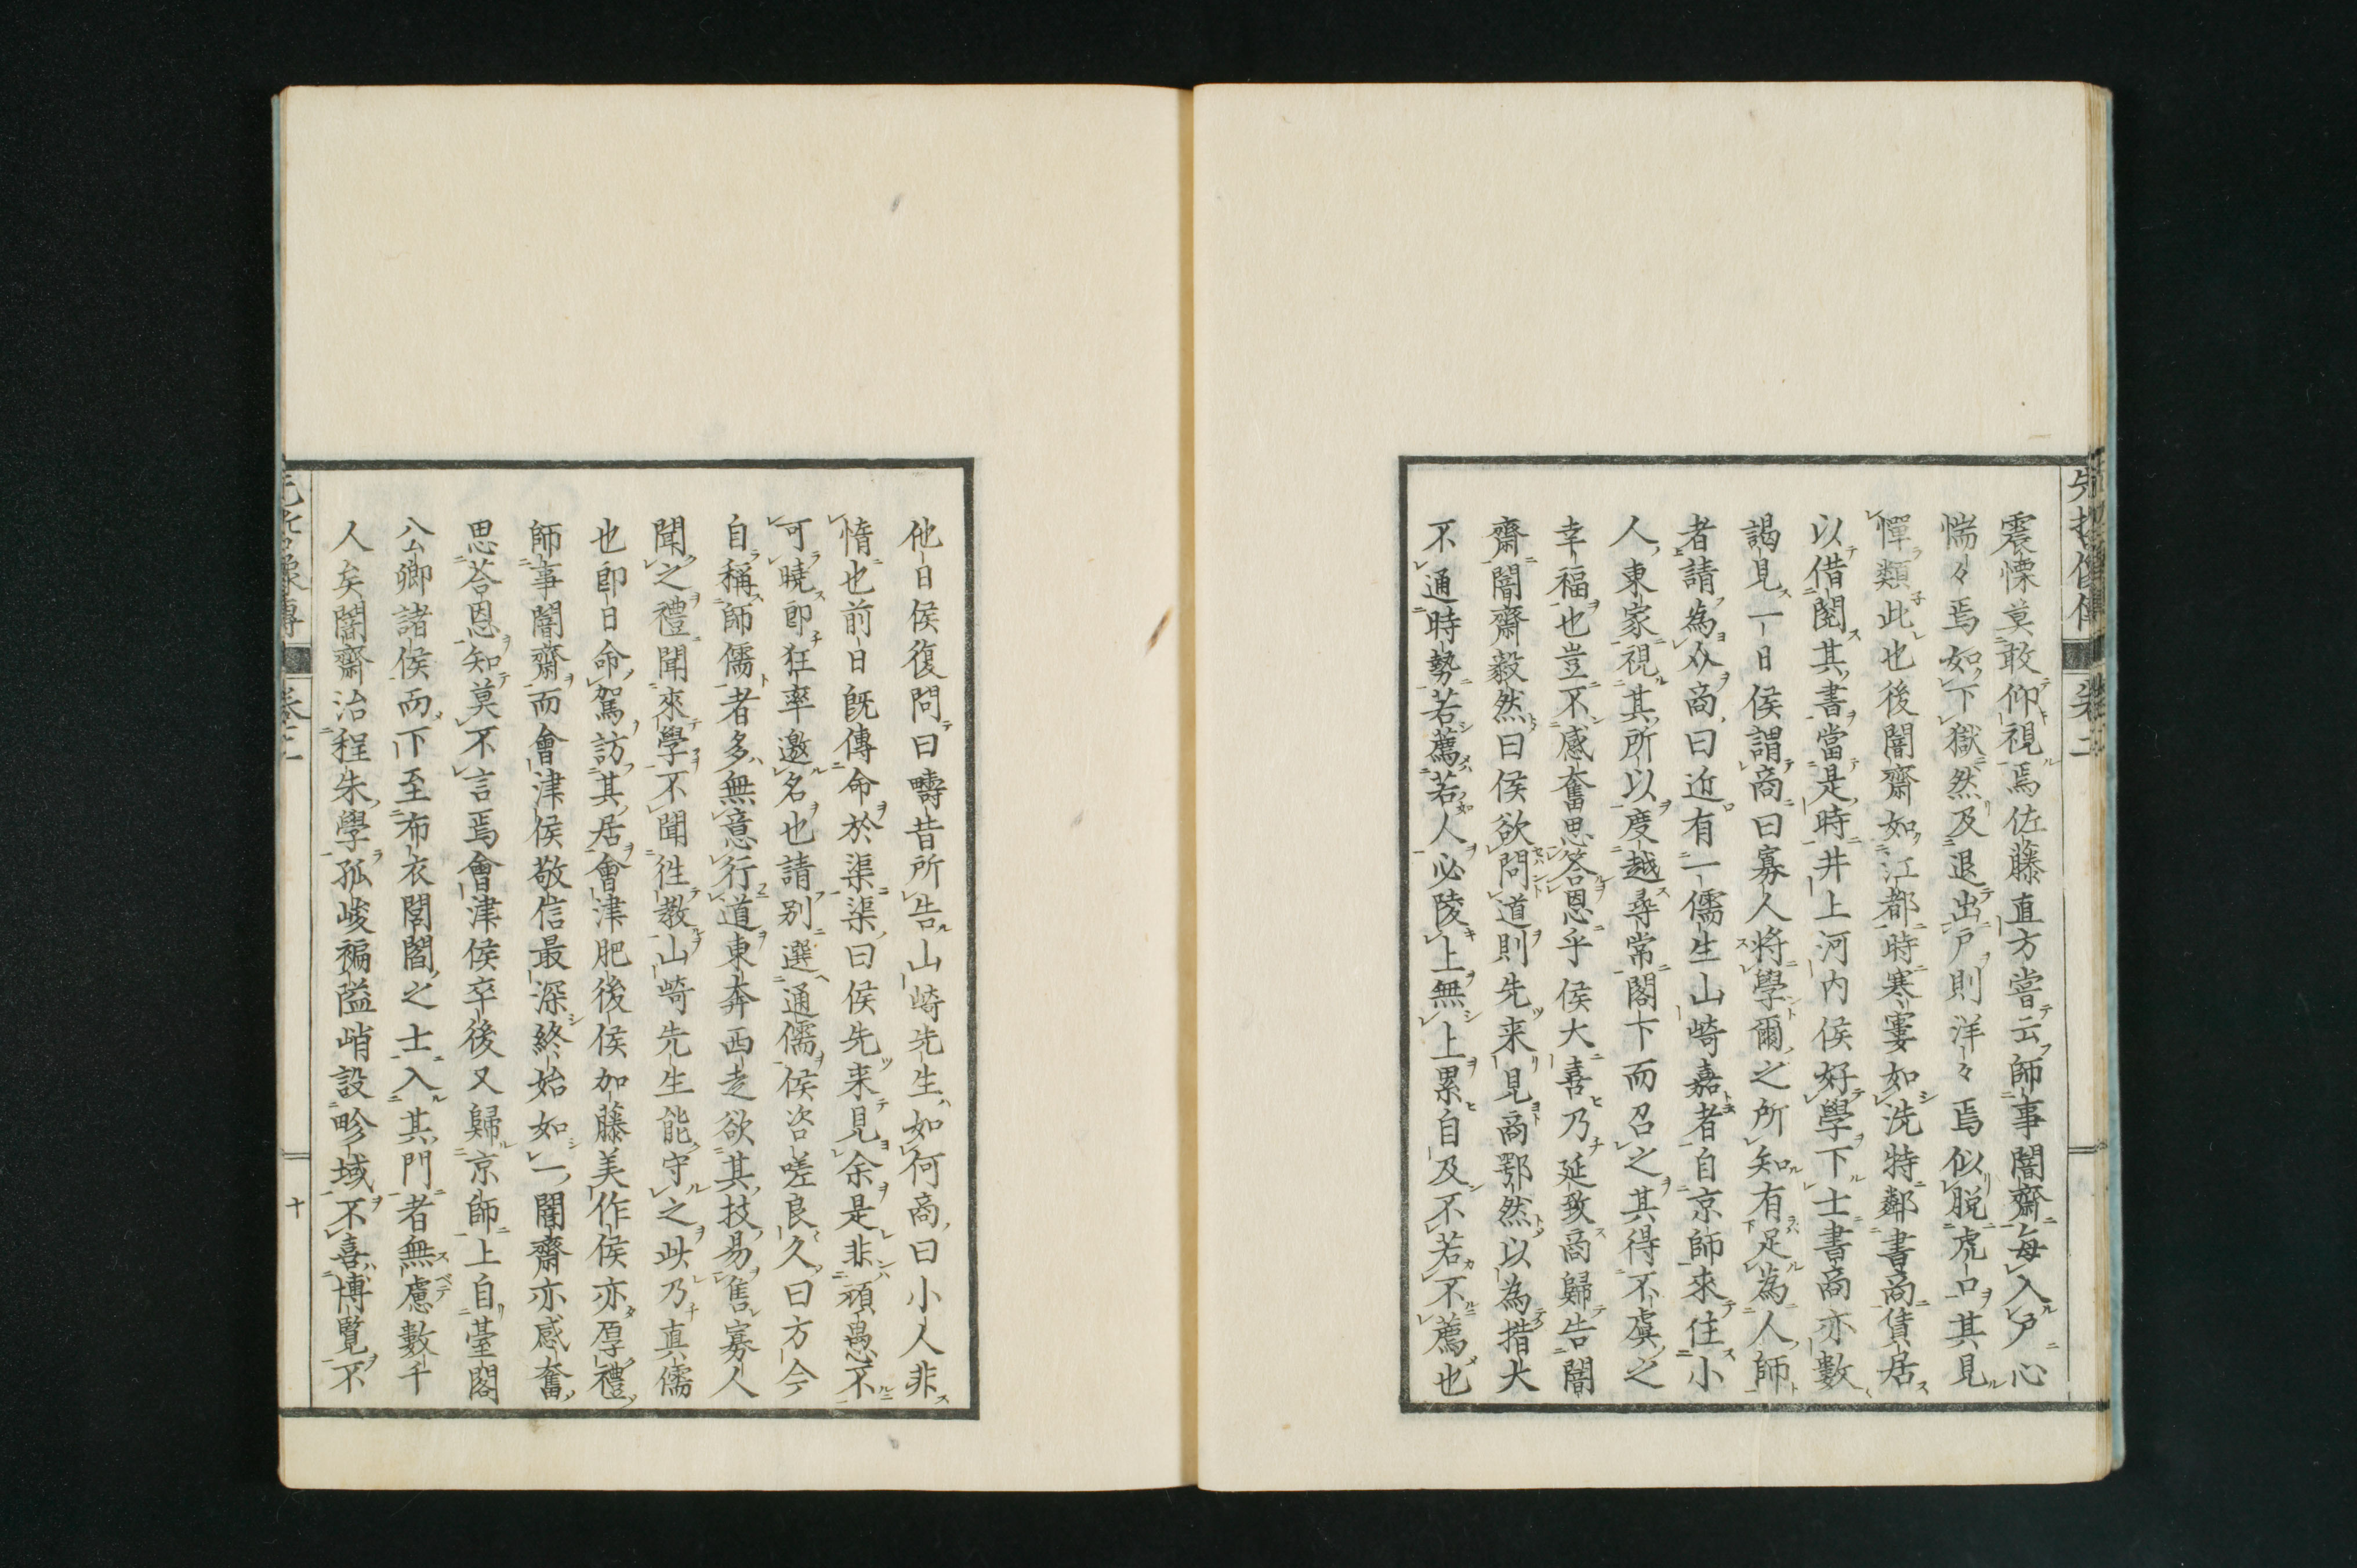 震慄莫敢仰視焉佐藤直方嘗云師事闇齋每入戸心
惴々焉如下獄然及退出戸則洋々焉似脱虎口其見
憚類此也後闇齋如江都時寒窶如洗特鄰書商僦居
以借閲其書當是時井上河内侯好學下士書商亦數
謁見一日侯謂商曰寡人將學爾之所知有足為人師
者請為介商曰近有一儒生山崎嘉者自京師來住小
人東家視其所以度越尋常閣下而召之其得不虞之
幸福也豈不感奮思答恩乎侯大喜乃延致商歸告闇
齋闇齋毅然曰侯欲問道則先来見商鄂然以為措大
不通時勢若薦若人必陵上無上累自及不若不薦也
他日侯復問曰疇昔所告山崎先生如何商曰小人非
惰也前日既傳命於渠渠曰侯先来見余是非頑愚不
可曉即狂率邀名也請別選通儒侯咨嗟良久曰方今
自稱師儒者多無意行道東奔西走欲其技易售寡人
聞之禮聞來學不聞徃教山崎先生能守之此乃真儒
也即日命駕訪其居會津肥後侯加藤美作侯亦厚禮
師事闇齋而會津侯敬信最深終始如一闇齋亦感奮
思荅恩知莫不言焉會津侯卒後又歸京師上自臺閣
公卿諸侯而下至布衣閭閻之士入其門者無慮數千
人矣闇齋治程朱學孤峻褊隘峭設畛域不喜博覽不
十